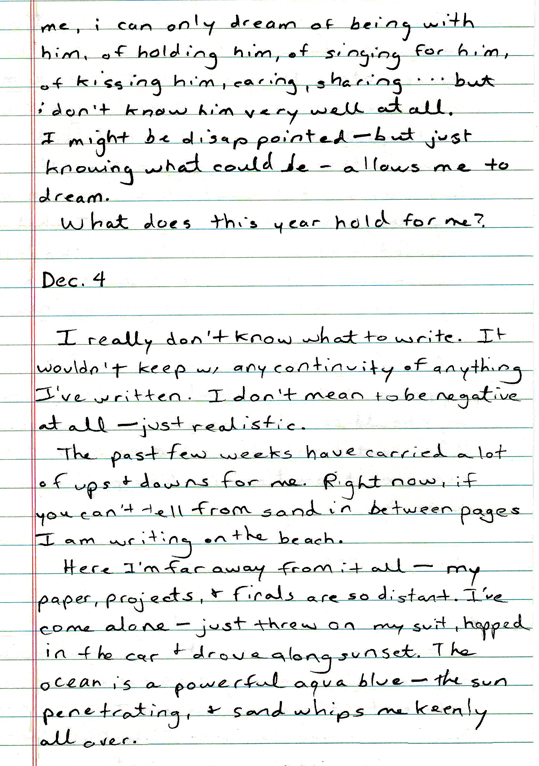 me, i can only dream of being with
him, of holding him, of singing for him,
of kissing him, caring, sharing ... but
i don't know him very well at all.
I might be disappointed — but just
knowing what could be — allows me to
dream.
What does this year hold for me?
Dec. 4
I really don't know what to write. It
wouldn't keep w/ any continuity of anything
I've written. I don't mean to be negative
at all — just realistic.
The past few weeks have carried a lot
of ups & downs for me. Right now, if
you can't tell from sand in between pages
I am writing on the beach.
Here I'm far away from it all — my
paper, projects, & finals are so distant. I've
come alone — just threw on my suit, hopped
in the car & drove along sunset. The
ocean is a powerful aqua blue — the sun
penetrating, & sand whips me keenly
all over.